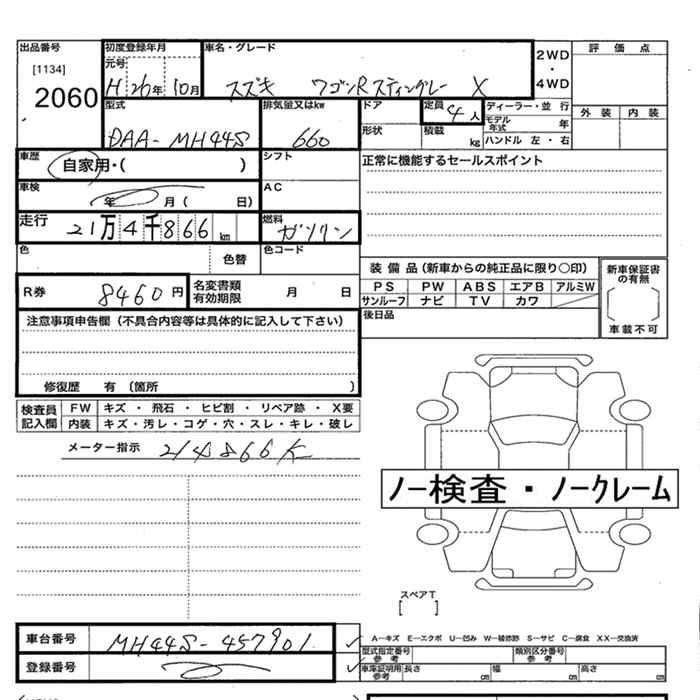 出品番号 初度登録年月 車名・グレード 2WD・4WD 評価点
[1134] 元号
2060 H 26年 10月 スズキ ワゴンRスティングレー X
型式 排気量又はkw ドア 定員 4人 ディーラー・並行 外装 内装
形状 積載 kg モデル年式 年
DAA-MH44S 660 ハンドル 左・右
車歴 自家用・( ) シフト 正常に機能するセールスポイント
車検 年 月( 日) AC
走行 21万4千866km 燃料 ガソリン
色 色替 色コード
装備品(新車からの純正品に限り〇印) 新車保証書の有無
R券 8460円 名変書類有効期限 月 日
PS PW ABS エアB アルミW
サンルーフ ナビ TV カワ
注意事項申告欄(不具合内容等は具体的に記入して下さい) 後日品 車載不可
修復歴 有(箇所 )
検査員記入欄 FW キズ・飛石・ヒビ割・リペア跡・X要
内装 キズ・汚レ・コゲ・穴・スレ・キレ・破レ
メーター指示 214866K
ノー検査・ノークレーム
スペアT
[ ]
車台番号 MH44S-457901
A—キズ E—エクボ U—凹み W—補修跡 S—サビ C—腐食 XX—交換済
型式指定番号 参考 類別区分番号 参考
登録番号 車庫証明用 参考 長さ cm 幅 cm 高さ cm